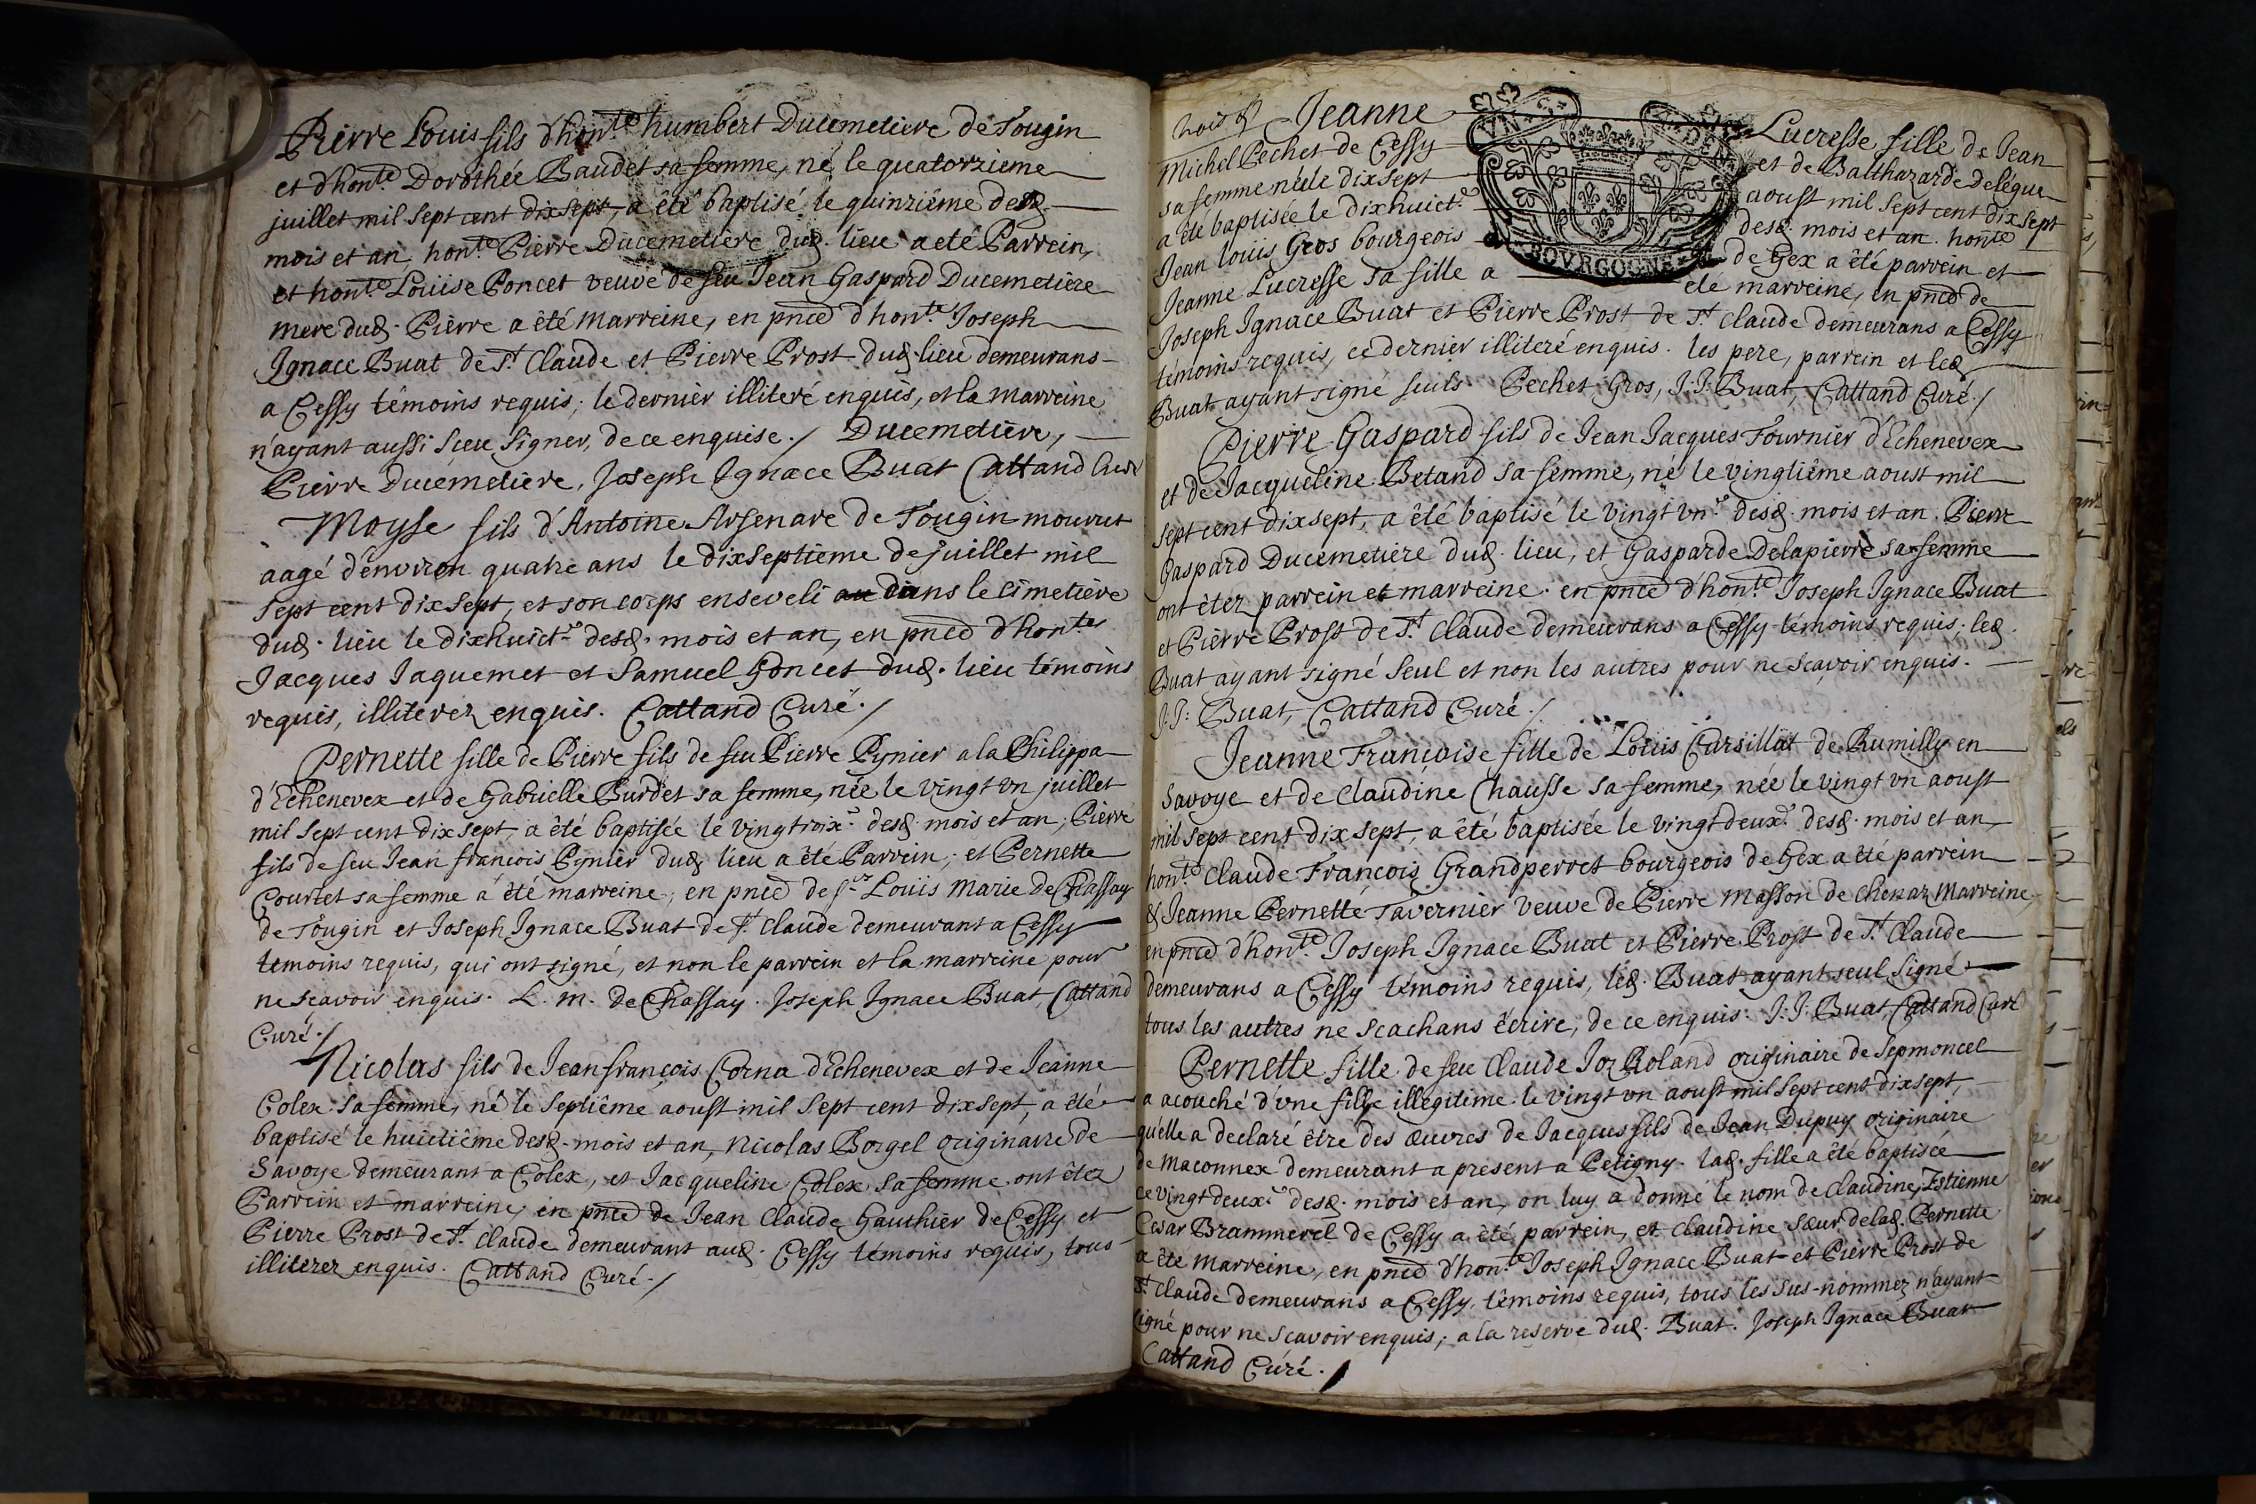 Pierre Louis fils d'hon.te humbert Ducemetiere de Tougin
et d'hon.te Dorothée Baudet sa femme, né le quatorzieme
juillet mil sept cent dix sept, a êté baptisé le quinziême desd.
mois et an, hon.te Pierre Ducemetiére dud. lieu a eté Parrein,
et hon.te Loüise Poncet veuve de feu Jean Gaspard Ducemetiére
mere dud. Pierre a êté Marreine, en pnce d'hon.te Joseph
Ignace Buat de S.t Claude et Pierre Prost dud. lieu demeurans
a Cessy têmoins requis; le dernier illiteré enquis, et la marreine
n'ayant aussi sceu signer, de ce enquise./ Ducemetiére,
Pierre Ducémetiére, Joseph Ignace Buat Cattand Curé
Moyse fils d'Antoine Arsenare de Tougin mourut
aagé d'environ quatre ans le dixseptieme de juillet mil
sept cent dix sept, et son corps enseveli au dans le cimetiére
dud. lieu le dixhuict.e desd. mois et an, en pnce d'hon.tes
Jacques Jaquemet et Samuel Goncet dud. lieu témoins
requis, illiterez enquis. Cattand Curé./
Pernette fille de Pierre fils de feu Pierre Pynier a la Philippa
d'Echenevex et de Gabrielle Burdet sa femme, née le vingt vn juillet
mil sept cent dix sept, a été baptisée le vingtroix.e desd. mois et an, Pierre
fils de feu Jean francois Pynier dud. lieu a êté Parrein, et Pernette
Courtet sa femme a été marreine, en pnce de s.r Loüis Marie de Chassay
de Tougin et Joseph Ignace Buat de S.t Claude demeurant a Cessy
témoins requis, qui ont signé, et non le parrein et la marreine pour
ne scavoir enquis. L. m. de Chassay. Joseph Ignace Buat, Cattand
Curé./
Nicolas fils de Jean françois Corna d'Echenevex et de Jeanne
Colex sa femme, né le septiême aoust mil sept cent dix sept, a êté
baptisé le huictiême desd. mois et an, Nicolas Borgel originaire de
Savoye demeurant a Colex, et Jacqueline Colex sa femme ont êtez
Parrein et marreine, en pnce de Jean Claude Gauthier de Cessy et
Pierre Prost de S.t Claude demeurant aud. Cessy têmoins requis, tous
illiterez enquis. Cattand Curé./
Jeanne Lucresse fille de Jean
Michel Pechet de Cessy et de Balthazarde Deléque
sa femme née le dix sept aoust mil sept cent dix sept
a êté baptisée le dixhuict.e desd. mois et an. hon.te
Jean loüis Gros bourgeois de Gex a êté parrein et
Jeanne Lucresse sa fille a eté marreine, en pnce de
VN DEN
BOVRGOGNE
Joseph Ignace Buat et Pierre Prost de S.t Claude demeurans a Cessy
têmoins requis, ce dernier illiteré enquis. les pere, parrein et led.
Buat ayant signé seuls. Pechet, Gros, J: J: Buat, Cattand Curé./
Pierre Gaspard fils de Jean Jacques Fournier d'Echenevex
et de Jacqueline Betand sa femme, né le vingtiême aoust mil
sept cent dix sept, a êté baptisé le vingt vn.e desd. mois et an. Pierre
Gaspard Ducemetiére dud. lieu, et Gasparde Delapierre sa femme
ont êtez parrein et marreine. en pnce d'hon.te Joseph Ignace Buat
et Pierre Prost de S.t Claude demeurans a Cessy témoins requis; led.
Buat ayant signé seul et non les autres pour ne scavoir enquis.
J: J: Buat, Cattand Curé./
Jeanne Françoise fille de Loüis Cursillat de Rumilly en
Savoye et de Claudine Chausse sa femme, née le vingt vn aoust
mil sept cent dix sept, a êté baptisée le vingt deux.e desd. mois et an,
hon.te Claude François Grandperret bourgeois de Gex a êté parrein
& Jeanne Pernette Tavernier veuve de Pierre Masson de Chenaz Marreine,
en pnce d'hon.te Joseph Ignace Buat et Pierre Prost de S.t Claude
demeurans a Cessy têmoins requis, led. Buat ayant seul signé
tous les autres ne scachans êcrire, de ce enquis. J: J: Buat, Cattand Curé
Pernette fille de feu Claude Joz Roland originaire de Sepmoncel
a acouché d'vne fille illégitime le vingt vn aoust mil sept cent dix sept
qu'elle a declaré être des œuvres de Jacques fils de Jean Dupuy originaire
de Maconnex demeurant a présent a Petigny. lad. fille a êté baptisée
le vingt deux.e desd. mois et an, on luy a donné le nom de Claudine, Estienne
Cesar Brammerel de Cessy a êté parrein, et Claudine sœur de lad. Pernette
a êté marreine, en pnce d'hon.te Joseph Ignace Buat et Pierre Prost de
S.t Claude demeurans a Cessy, têmoins requis, tous les sus-nommez n'ayant
signé pour ne scavoir enquis; a la reserve dud. Buat. Joseph Ignace Buat
Cattand Curé./